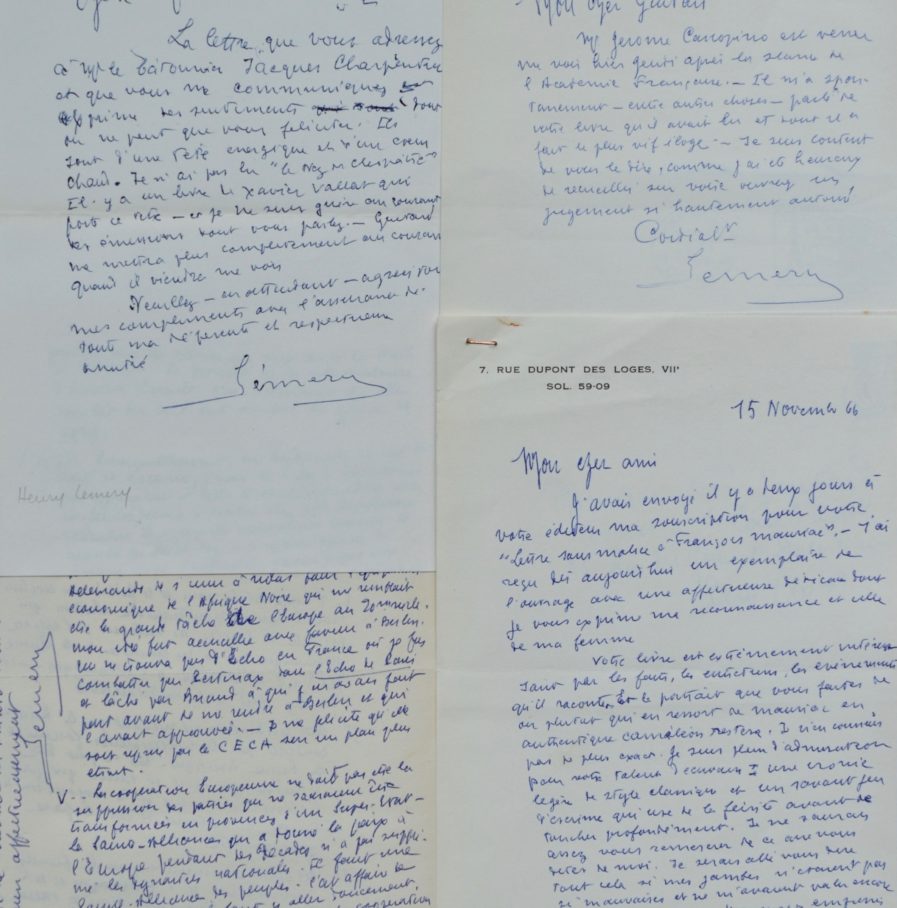 La lettre que vous adressez
à Mr le Bâtonnier Jacques Charpentier
et que vous me communiquez
exprime des sentiments dont
on ne peut que vous féliciter. Ils
sont d'une tête énergique et d'un cœur
chaud. Je n'ai pas lu "le nez de Cléopâtre"
Il y a un livre de Xavier Vallat qui
porte ce titre — et je ne suis guère au courant
des émissions dont vous parlez. —
me mettra plus complètement au courant
quand il viendra me voir
Veuillez — en attendant — agréer
mes compliments avec l'assurance de
toute ma déférente et respectueuse
amitié
Lémery
Henry Lemery
Mon cher
Mr Jerome Carcopino est venu
me voir après la séance de
l'Académie Française. — Il m'a spon-
tanement — entre autres choses — parlé de
votre livre qu'il avait lu et dont il a
fait le plus vif éloge. — Je suis content
de vous le dire, comme j'ai été heureux
de recueillir sur votre ouvrage un
jugement si hautement autorisé
Cordialt
Lemery
7. RUE DUPONT DES LOGES, VIIe
SOL. 59-09
15 Novembre 66
Mon cher ami
J'avais envoyé il y a deux jours à
votre éditeur ma souscription pour votre
"Lettre sans malice à François Mauriac". — J'ai
reçu dès aujourd'hui un exemplaire de
l'ouvrage avec une affectueuse dédicace dont
je vous exprime ma reconnaissance et celle
de ma femme
Votre livre est extrêmement
tant par les faits, les entretiens, les évènements
qu'il raconte. Et le portrait que vous faites de
ou plutôt qui en ressort de Mauriac en
authentique caméléon restera. Je n'en connais
pas de plus exact. Je suis plein d'admiration
pour votre talent d'écrivain d'une ironie
légère de style classique et un savant jeu
d'escrime qui use de la feinte avant de
toucher profondément. Je ne saurais
assez vous remercier de ce que vous
dites de moi. Je serais allé vous dire
tout cela si mes jambes n'étaient pas
si mauvaises et ne m'avaient pas encore
économique de l'Afrique Noire qui me
être la grande tâche de l'Europe au
mon idée fut accueillie avec faveur à Berlin.
ne trouva pas d'écho en France où je fus
combattu par Pertinax dans l'Echo de Paris
et lâché par Briand à qui j'en avais fait
part avant de me rendre à Berlin et qui
l'avait approuvée. — Je me félicite qu'elle
soit reprise par le CECA sur un plan plus
étroit.
V.. La coopération Européenne ne doit pas être la
suppression des patries qui ne sauraient être
transformées en provinces d'un super-Etat —
la Sainte-Alliance qui a donné la paix à
l'Europe pendant des décades n'a pas suppri-
mé les dynasties nationales. Il faut une
Sainte-Alliance des peuples.
bien affectueusement
Lemery